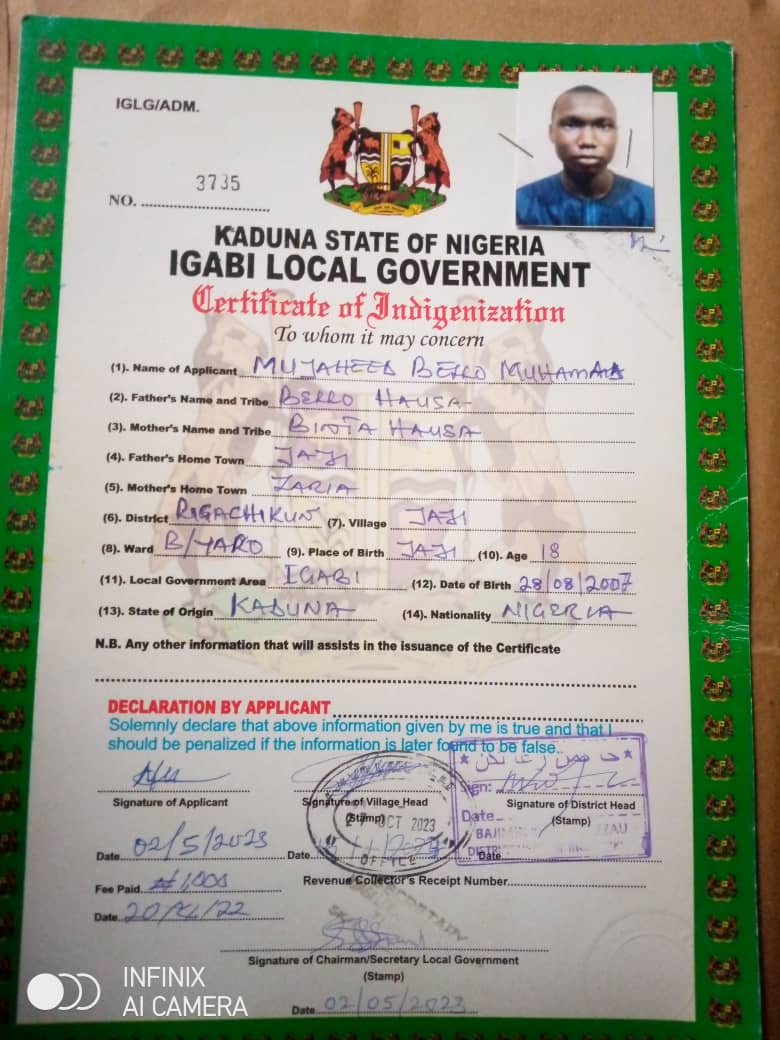 IGLG/ADM.
3735
NO. ........................
KADUNA STATE OF NIGERIA
IGABI LOCAL GOVERNMENT
Certificate of Indigenization
To whom it may concern
(1). Name of Applicant MUJAHEED BELLO MUHAMAD
(2). Father's Name and Tribe BELLO HAUSA
(3). Mother's Name and Tribe BINTA HAUSA
(4). Father's Home Town JAJI
(5). Mother's Home Town ZARIA
(6). District RIGACHIKUN (7). Village JAJI
(8). Ward B/YARO (9). Place of Birth JAJI (10). Age 18
(11). Local Government Area IGABI (12). Date of Birth 28/08/2007
(13). State of Origin KADUNA (14). Nationality NIGERIA
N.B. Any other information that will assists in the issuance of the Certificate
DECLARATION BY APPLICANT
Solemnly declare that above information given by me is true and that I
should be penalized if the information is later found to be false.
Sign:
Signature of Applicant Signature of Village Head Signature of District Head
(Stamp) 27 OCT 2023 (Stamp)
Date
BAJIM
DIST
OFFICE
Date 02/5/2023 Date Date
Fee Paid ₦1,000 Revenue Collector's Receipt Number
Date 20/4/22
Signature of Chairman/Secretary Local Government
(Stamp)
Date 02/05/2023
INFINIX
AI CAMERA